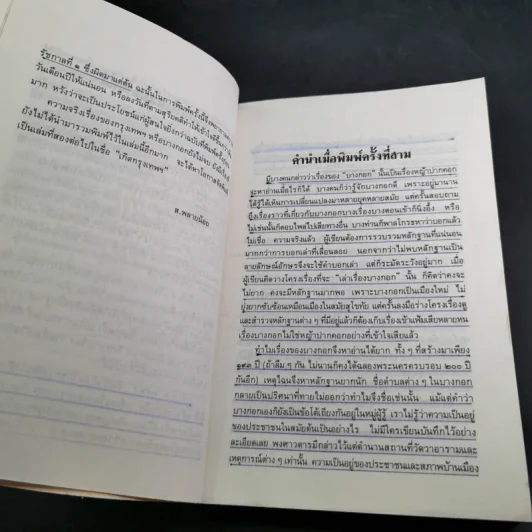 รัชกาลที่ ๑ ซึ่งผิดมาแต่ต้น ฉะนั้นในการพิมพ์ครั้งนี้จึงพยายาม
วันเดือนปีให้แน่นอน หรือลงวันที่ตามสุริยคติทำให้เข้าใจ
มาก หวังว่าจะเป็นประโยชน์แก่ผู้สนใจยิ่งกว่าฉบับที่พิมพ์ครั้ง
ความจริงเรื่องของกรุงเทพฯ หรือบางกอกยังไม่จบ ยังมี
ยังไม่ได้นำมารวมพิมพ์ไว้ในเล่มนี้อีกมาก จะได้หาโอกาส
เป็นเล่มที่สองต่อไปในชื่อ “เกิดกรุงเทพฯ”
ส.พลายน้อย
คำนำเมื่อพิมพ์ครั้งที่สาม
มีบางคนกล่าวว่าเรื่องของ “บางกอก” นั้นเป็นเรื่องหญ้าปากคอก
จะหาอ่านเมื่อไรก็ได้ บางคนก็ว่ารู้จักบางกอกดี เพราะอยู่มานาน
ได้รู้ได้เห็นการเปลี่ยนแปลงมาหลายยุคหลายสมัย แต่ครั้นสอบถาม
ถึงเรื่องราวที่เกี่ยวกับบางกอกบางเรื่องบางตอนเข้าก็นิ่งอึ้ง หรือ
ไม่เช่นนั้นก็ตอบไพล่ไปเสียทางอื่น บางท่านก็พาลโกรธหาว่าบอกแล้ว
ไม่เชื่อ ความจริงแล้ว ผู้เขียนต้องการรวบรวมหลักฐานที่แน่นอน
มากกว่าการบอกเล่าที่เลื่อนลอย นอกจากว่าไม่พบหลักฐานเป็น
ลายลักษณ์อักษรจึงจะใช้คำบอกเล่า แต่ก็ระมัดระวังอยู่มาก เมื่อ
ผู้เขียนคิดวางโครงเรื่องที่จะ “เล่าเรื่องบางกอก” นั้น ก็คิดว่าคงจะ
ไม่ยาก คงจะมีหลักฐานมากพอ เพราะบางกอกเป็นเมืองใหม่ ไม่
ยุ่งยากซับซ้อนเหมือนเมืองในสมัยสุโขทัย แต่ครั้นลงมือร่างโครงเรื่องดู
และสำรวจหลักฐานต่าง ๆ ที่มีอยู่แล้วก็ต้องเก็บเรื่องเข้าแฟ้มเสียหลายหน
เรื่องบางกอกไม่ใช่หญ้าปากคอกอย่างที่เข้าใจเสียแล้ว
ทำไมเรื่องของบางกอกจึงหาอ่านได้ยาก ทั้ง ๆ ที่สร้างมาเพียง
ปี (ถ้าลืม ๆ กัน ไม่นานก็คงได้ฉลองพระนครครบรอบ ๒๐๐ ปี
กันอีก) เหตุไฉนจึงหาหลักฐานยากนัก ชื่อตำบลต่าง ๆ ในบางกอก
กลายเป็นปริศนาที่ทายไม่ออกว่าทำไมจึงชื่อเช่นนั้น แม้แต่คำว่า
บางกอกเองก็ยังเป็นข้อโต้เถียงกันอยู่ในหมู่ผู้รู้ เราไม่รู้ว่าความเป็นอยู่
ของประชาชนในสมัยต้นเป็นอย่างไร ไม่มีใครเขียนบันทึกไว้อย่าง
ละเอียดเลย พงศาวดารมีกล่าวไว้แต่ตำนานสถานที่วัดวาอารามและ
เหตุการณ์ต่าง ๆ เท่านั้น ความเป็นอยู่ของประชาชนและสภาพบ้านเมือง